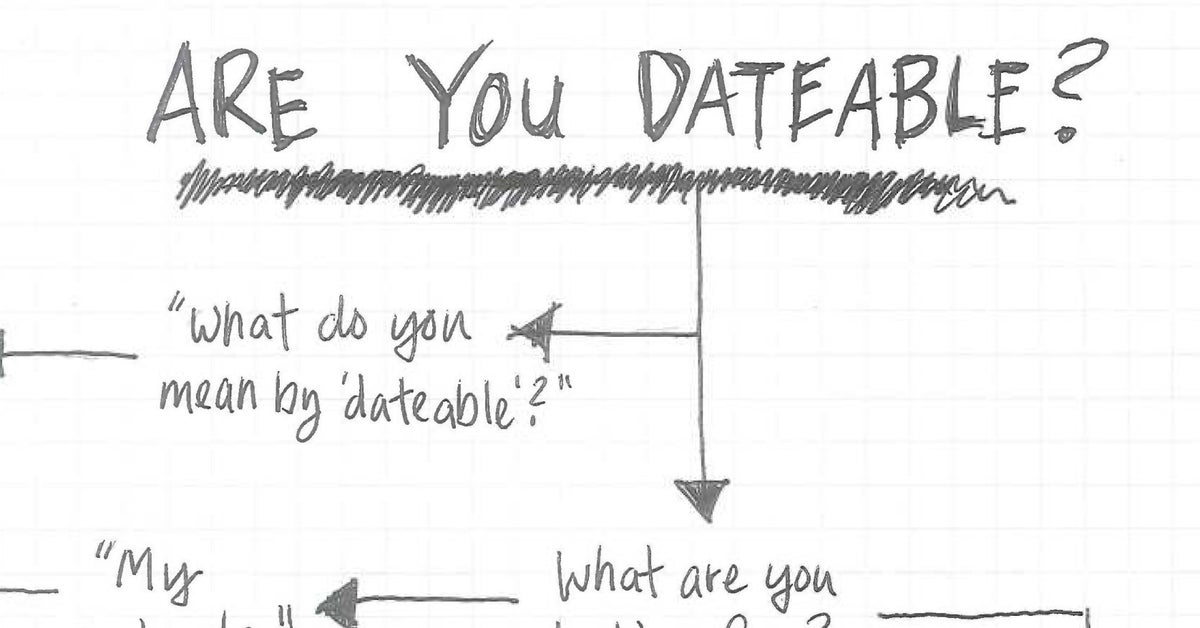 ARE YOU DATEABLE?
"What do you
mean by 'dateable'?"
"My
What are you